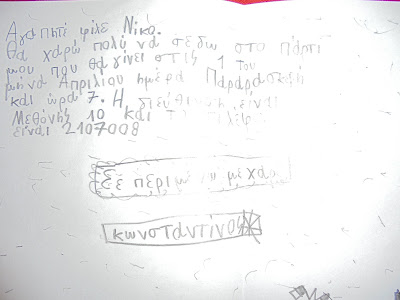 Αγαπητέ φίλε Νίκο.
Θα χαρώ πολύ να σε δω στο πάρτι
μου που θα γίνει στις 1 του
μήνα Απριλίου ημέρα Παραρασκεή
και ώρα 7. Η διεύθηνση είναι
Μεθώνης 10 και το
είναι 2107008
Σε περιμ μεχαρ
κωνσταντίνος